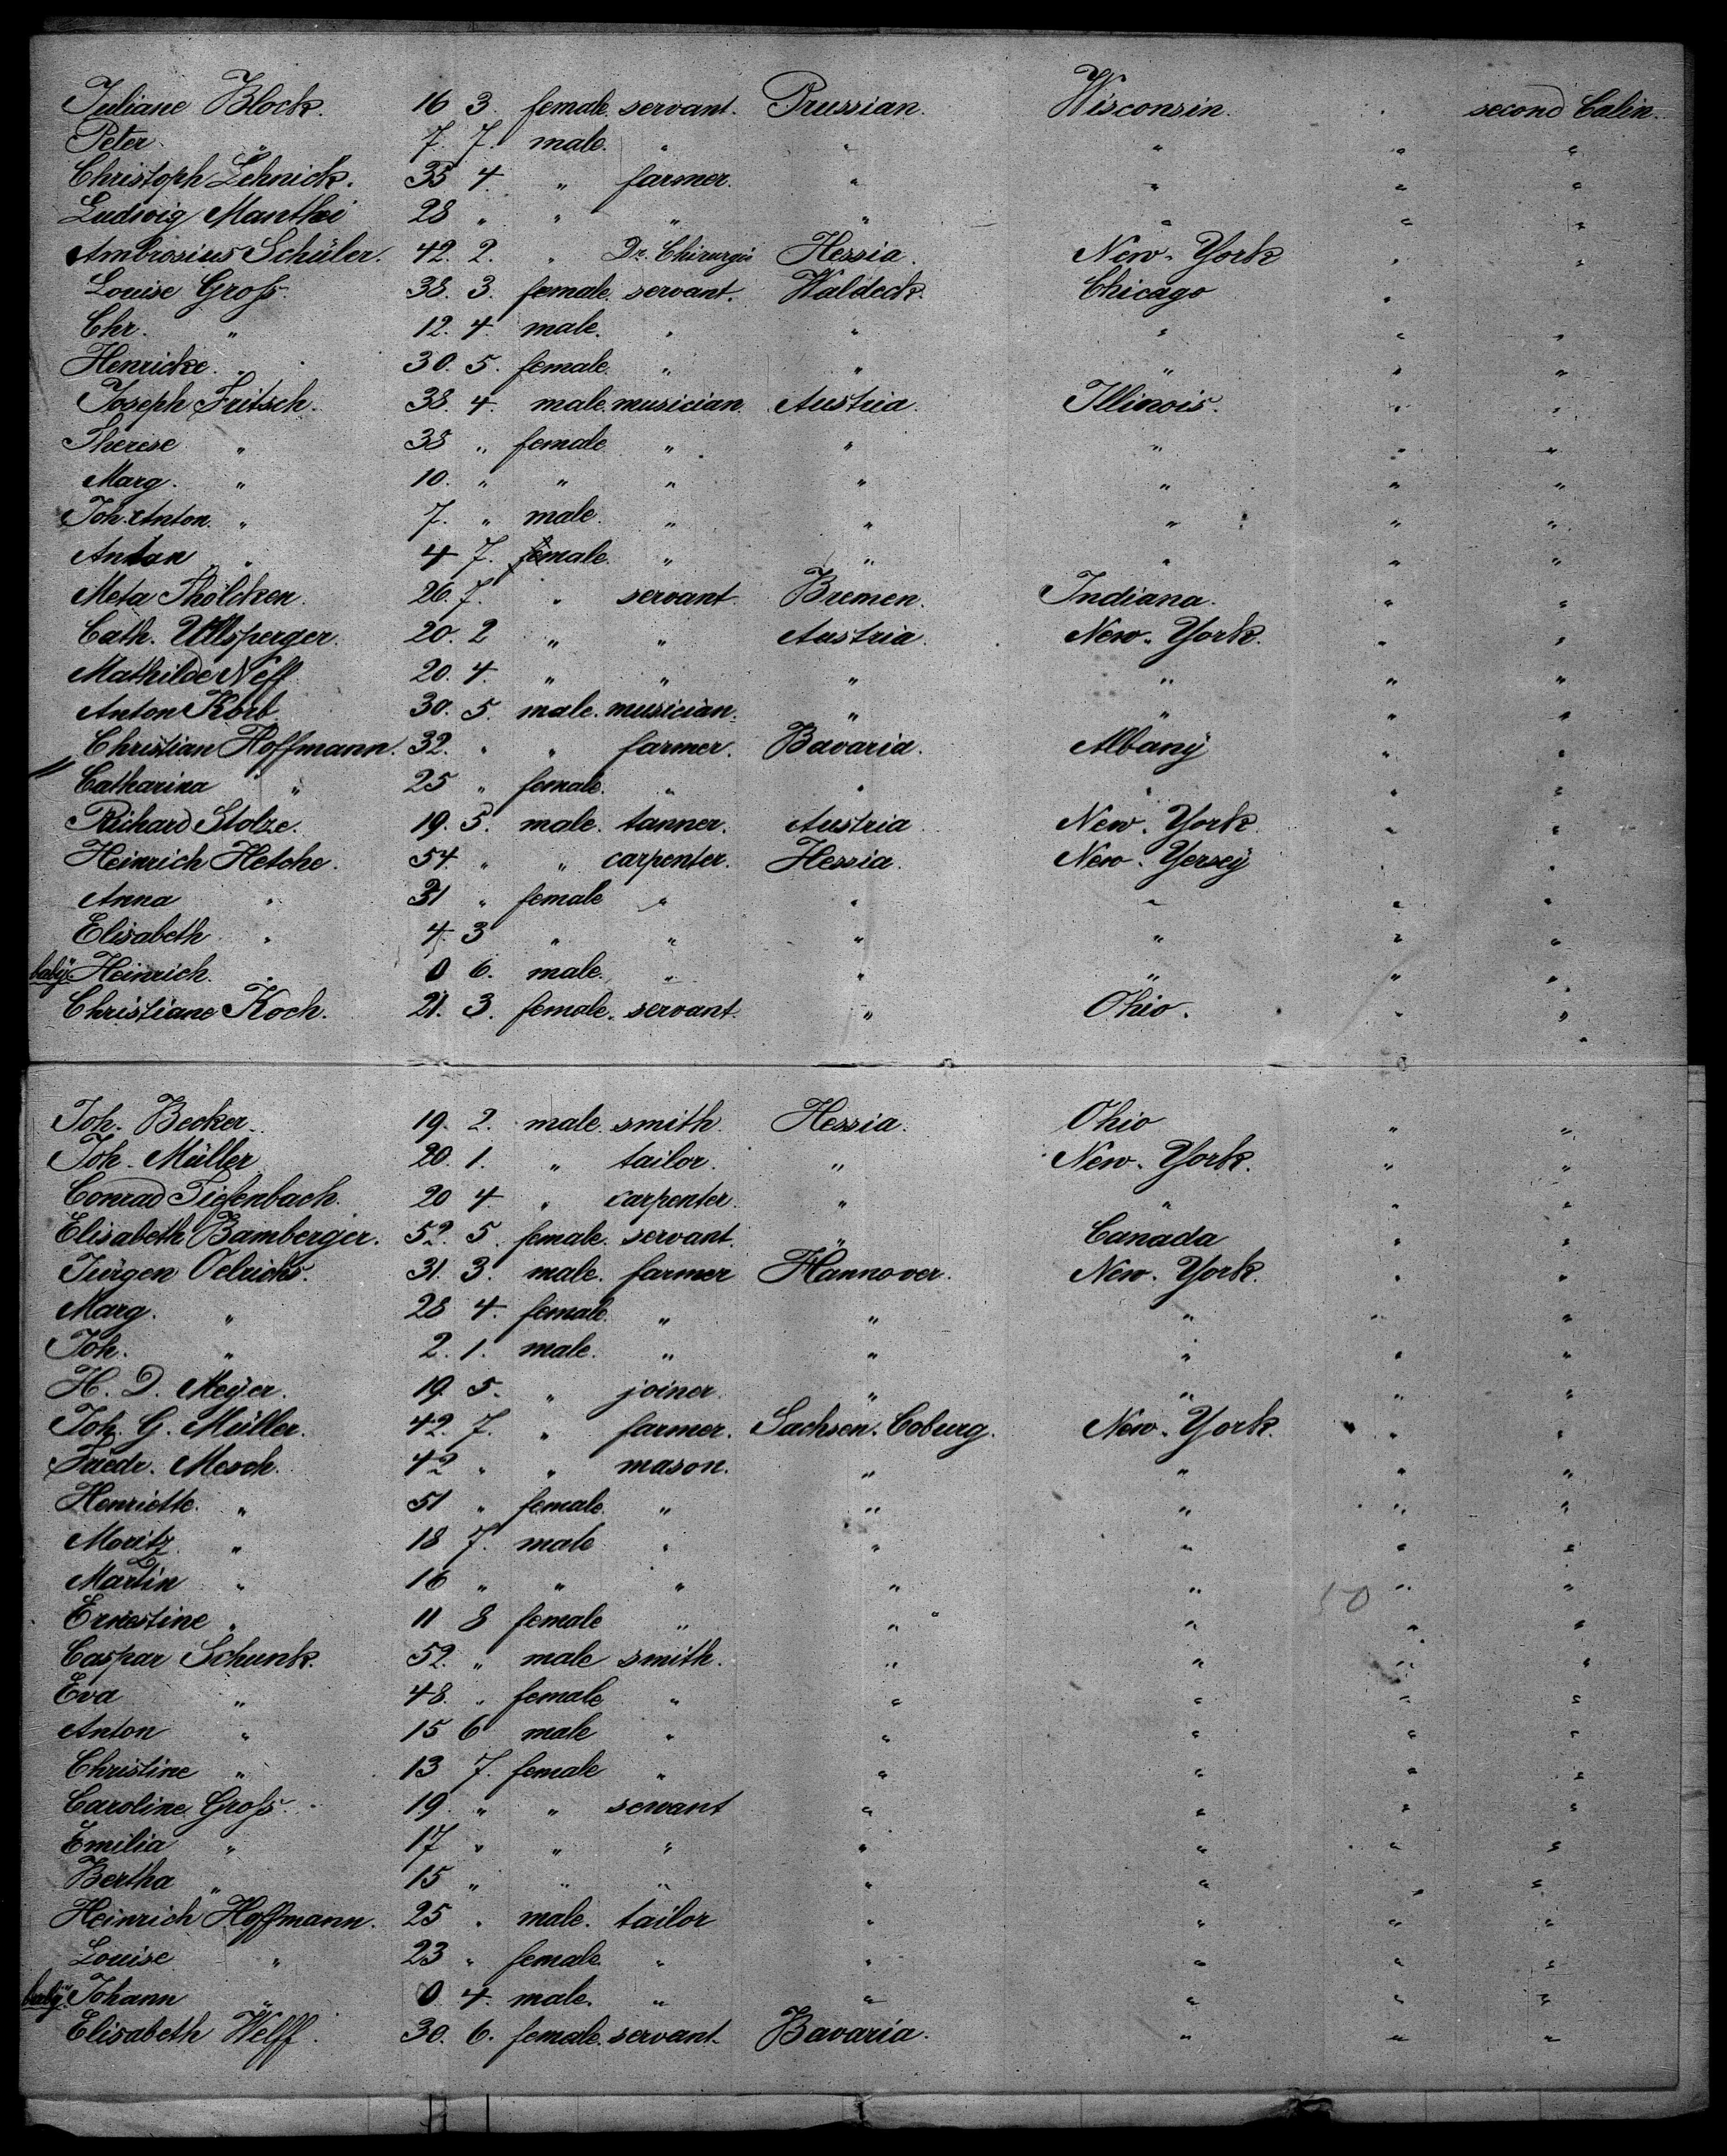 Juliane Block. 16 3. female. servant. Prussian. Wisconsin. . second Cabin.
Peter. " 7. 7. male. " " " " "
Christoph Lehnick. 35 4. " farmer. " " " "
Ludwig Manthei 28 " " " " " " "
Ambrosius Schüler. 42. 2. " Dr. Chirurgis Hessia. New-York " "
Louise Groß. 38. 3. female. servant. Waldeck. Chicago "
Chr. " 12. 4. male. " " " " "
Henricke. " 30. 5. female. " " " " "
Joseph Fritsch. 38. 4. male. musician. Austria. Illinois. " "
Therese " 38 " female " " " " "
Marg. " 10. " " " " " " "
Joh. Anton. " 7. " male. " " " " "
Anton " 4 7. female. " " " " "
Meta Thölcken. 26. 7. " servant. Bremen. Indiana. " "
Cath. Ullsperger. 20. 2 " " Austria. New-York. " "
Mathilde Neff. 20. 4. " " " " " "
Anton Korb 30. 5. male. musician. " " " "
Christian Hoffmann. 32. " " farmer. Bavaria. Albany " "
Catharina " 25 " female. " " " " "
Richard Stolze. 19. 5. male. tanner. Austria. New-York. " "
Heinrich Hetche. 54. " " carpenter. Hessia. New-Yersey " "
Anna " 31 " female " " " " "
Elisabeth " 4. 3 " " " " " "
baby. Heinrich. " 0 6. male. " " " " "
Christiane Koch. 21. 3. female. servant. " Ohio. " "
Joh. Becker. 19. 2. male. smith. Hessia. Ohio " "
Joh. Müller 20. 1. " tailor. " New-York. " "
Conrad Tiefenbach. 20 4 " carpenter. " " " "
Elisabeth Bamberger. 52. 5. female. servant. " Canada " "
Jürgen Oelrichs. 31. 3. male. farmer Hannover. New-York. " "
Marg. " 28 4. female. " " " " "
Joh. " 2. 1. male. " " " " "
H. D. Meyer. 19. 5. " joiner. " " " "
Joh. G. Müller. 42. 7. " farmer. Sachsen-Coburg. New-York. " "
Friedr. Mesch. 42 " " mason. " " " "
Henriette. " 51 " female. " " " " "
Moritz " 18 7. male " " " " "
Martin " 16 " " " " " " "
Ernestine " 11 8 female " " " " "
Caspar Schunk. 52. " male smith. " " " "
Eva " 48. " female " " " " "
Anton " 15 6 male " " " " "
Christine " 13 7. female " " " " "
Caroline Groß. 19. " " servant " " " "
Emilia " 17 " " " " " " "
Bertha " 15 " " " " " " "
Heinrich Hoffmann. 25 " male. tailor " " " "
Louise " 23 " female. " " " " "
baby. Johann " 0. 4. male. " " " " "
Elisabeth Welff. 30. 6. female. servant. Bavaria. " " "